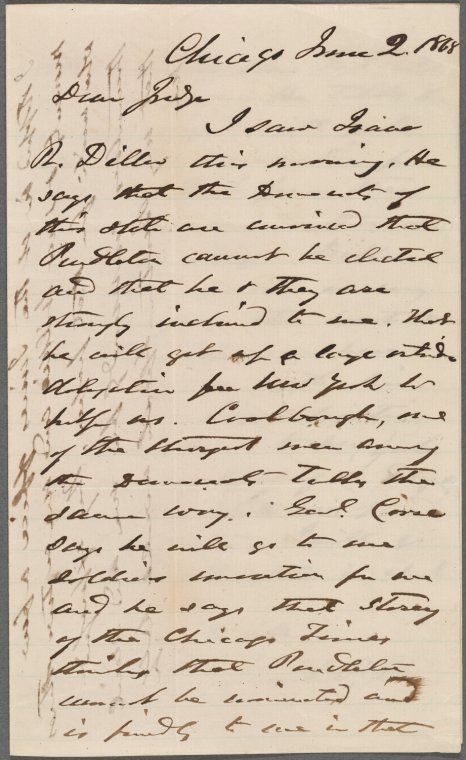 Chicago June 2. 1868
Dear Judge
I saw Isaac
R. Diller this morning. He
says that the Democrats of
this state are convinced that
Pendleton cannot be elected
and that he & they are
strongly inclined to me. That
he will get up a large outside
delegation for New York to
help us. Coolbaugh, one
of the strongest men among
the Democrats talks the
same way. Genl. Corse
says he will go to
soldiers convention for me
and he says that Storey
of the Chicago Times
thinks that Pendleton
cannot be nominated and
is friendly to me in that